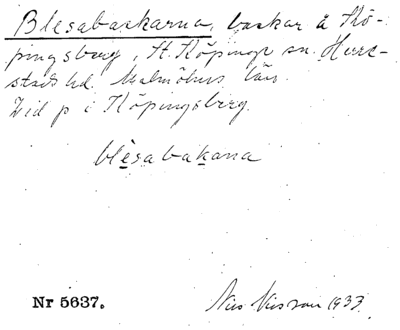 Blesabackarna, backar å Kö-
pingsberg, St. Köpinge sn. Herre-
stads hd. Malmöhus län.
Vid p i Köpingsberg.
blesabakana
Nr 5637.
Nils Nilsson 1933